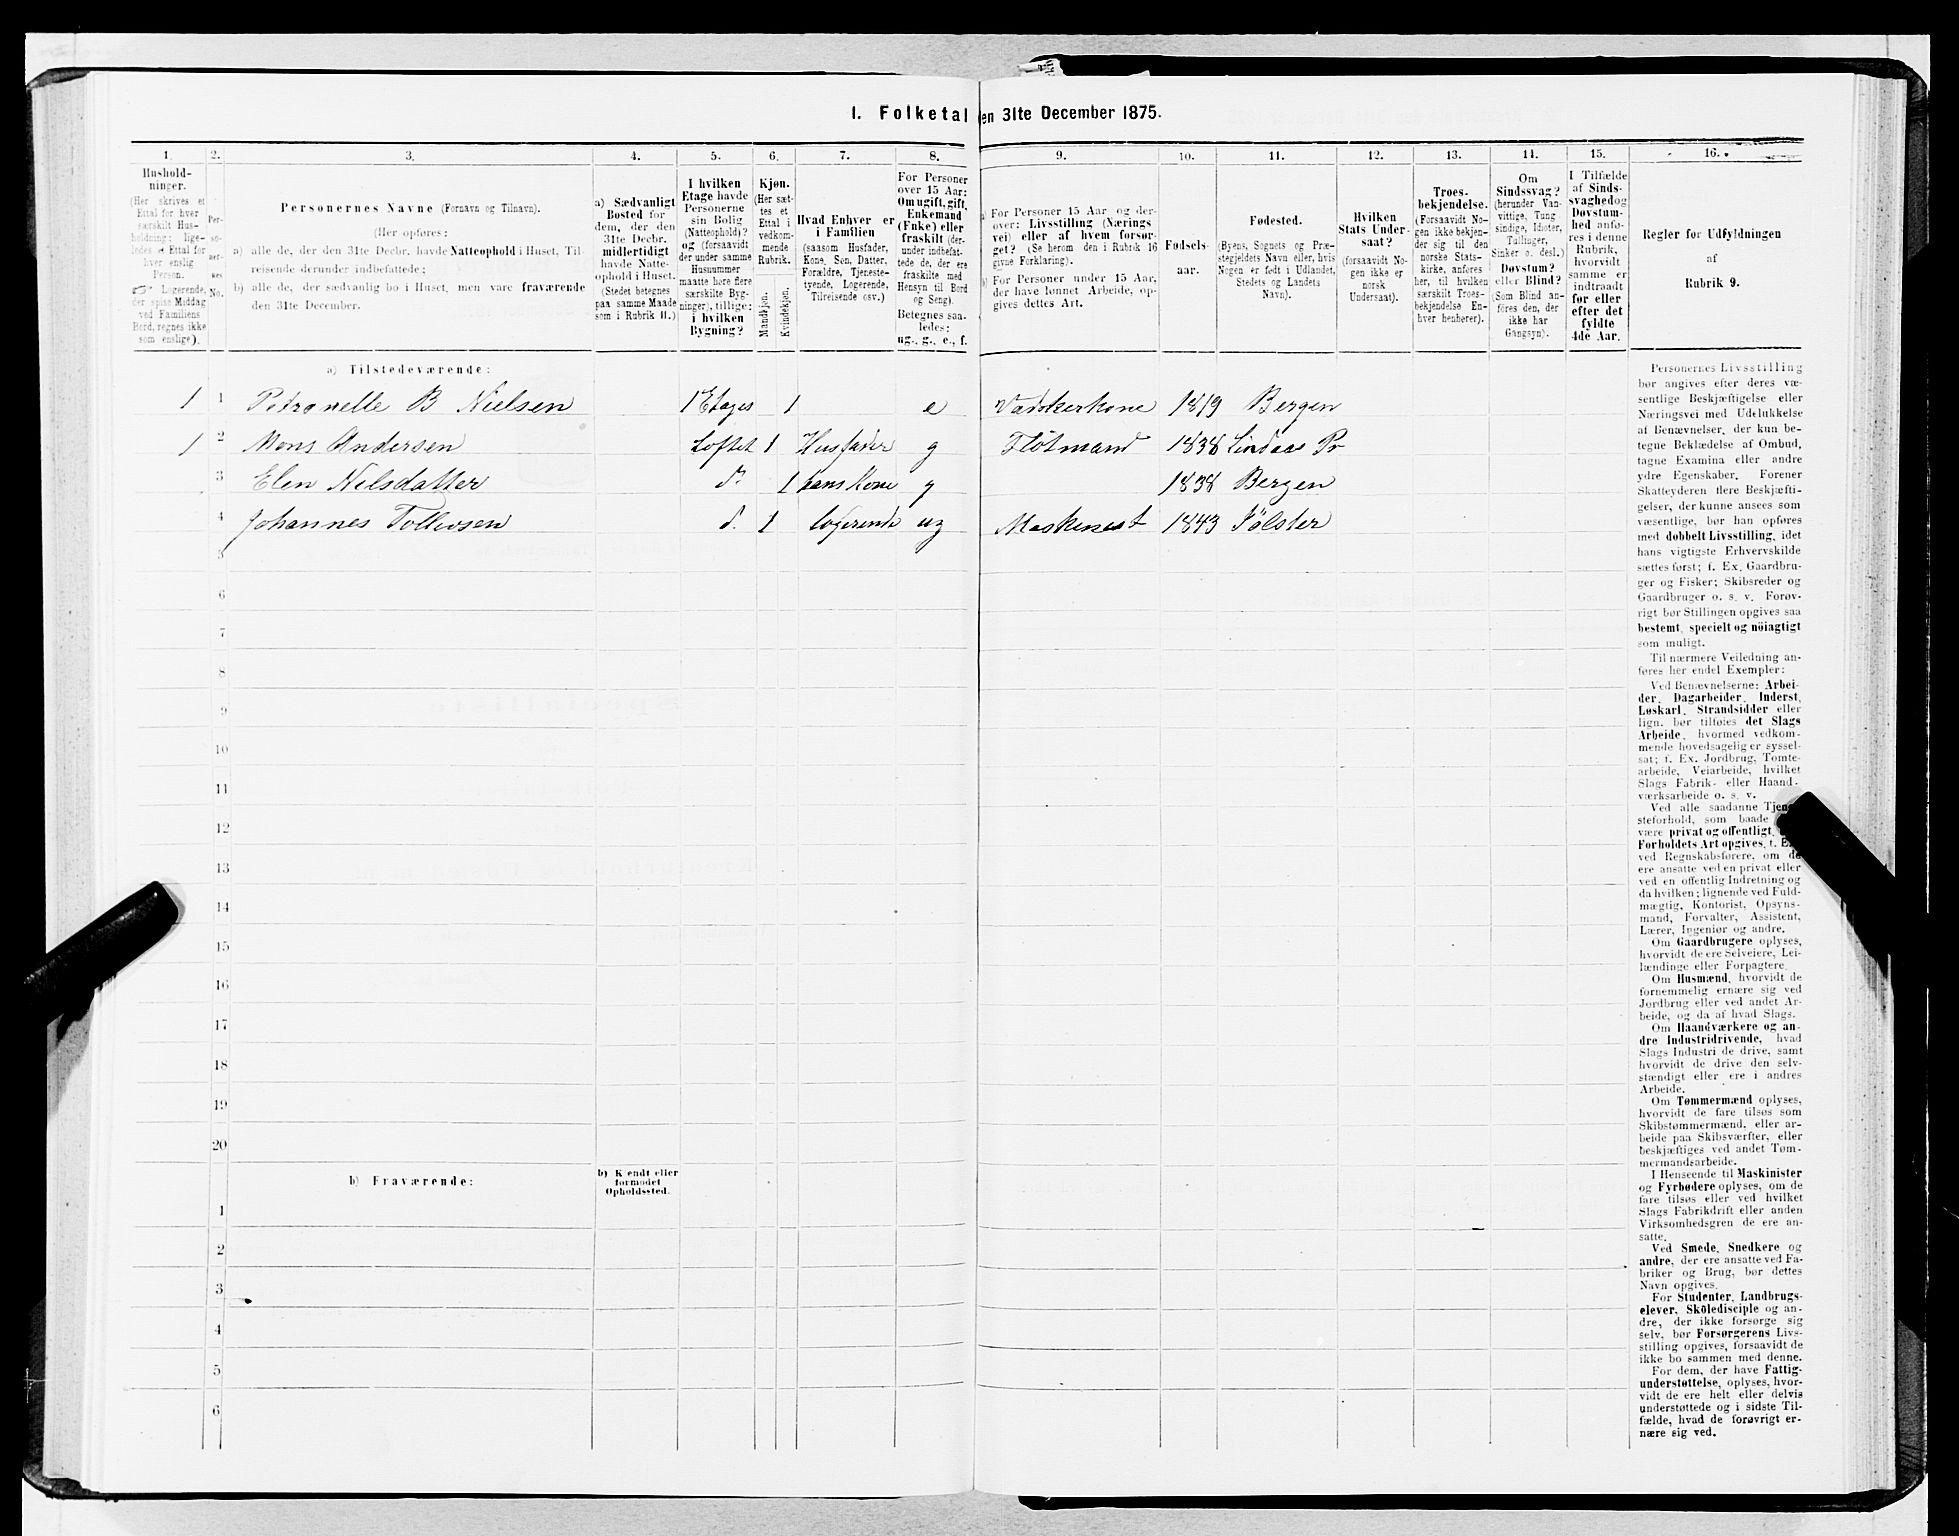 1. Folketal den 31te December 1875.
1.
Hushold-
ninger.
(Her skrives et
Ettal for hver
særskilt Hus-
holdning; lige-
ledes et Ettal for
hver enslig
Person.
Logerende,
der spise Middag
ved Familiens
Bord, regnes ikke
som enslige).
2.
Per-
so-
ner-
nes
No.
3.
Personernes Navne (Fornavn og Tilnavn).
(Her opføres:
a) alle de, der den 31te Decbr. havde Natteophold i Huset, Til-
reisende derunder indbefattede;
b) alle de, der sædvanlig bo i Huset, men vare fraværende
den 31te December.
4.
a) Sædvanligt
Bosted for
dem, der den
31te Decbr.
midlertidigt
havde Natte-
ophold i Huset.
(Stedet betegnes
paa samme Maade
som i Rubrik 11.)
5.
I hvilken
Etage havde
Personerne
sin Bolig
(Natteophold)?
og (forsaavidt
der under samme
Husnummer
maatte høre flere
særskilte Byg-
ninger), tillige:
i hvilken
Bygning?
6.
Kjøn.
(Her sæt-
tes et
Ettal i
vedkom-
mende
Rubrik.
Mandkjøn.
Kvindekjøn.
7.
Hvad Enhver er
i Familien
(saasom Husfader,
Kone, Søn, Datter,
Forældre, Tjeneste-
tyende, Logerende,
Tilreisende osv.)
8.
For Personer
over 15 Aar:
Om ugift, gift,
Enkemand
(Enke) eller
fraskilt (der-
under indbefat-
tede de, der ere
fraskilte med
Hensyn til Bord
og Seng).
Betegnes saa-
ledes:
ug., g., e., f.
9.
a) For Personer 15 Aar og der-
over: Livsstilling (Nærings
vei) eller af hvem forsør-
get? (Se herom den i Rubrik 16
givne Forklaring).
b) For Personer under 15 Aar,
der have lønnet Arbeide, op-
gives dettes Art.
10.
Fødsels-
aar.
11.
Fødested.
(Byens, Sognets og Præ-
stegjeldets Navn eller, hvis
Nogen er født i Udlandet,
Stedets og Landets
Navn).
12.
Hvilken
Stats Under-
saat?
(forsaavidt No-
gen ikke er
norsk
Undersaat).
13.
Troes-
bekjendelse.
(Forsaavidt No-
gen ikke bekjen-
der sig til den
norske Stats-
kirke, anføres
her, til hvilken
særskilt Troes-
bekjendelse En-
hver henhører).
14.
Om
Sindssvag?
(herunder Van-
vittige, Tung
sindige, Idioter,
Tullinger,
Sinker o. desl.)
Døvstum?
eller Blind?
(Som Blind an-
føres den, der
ikke har
Gangsyn).
15.
I Tilfælde
af Sinds-
svaghed og
Døvstum-
hed anfø-
res i denne
Rubrik,
hvorvidt
samme er
indtraadt
før eller
efter det
fyldte
4de Aar.
16.
Regler for Udfyldningen
af
Rubrik 9.
a) Tilstedeværende:
1 1 Petronelle B Nielsen 1 Etages 1 e Vadskerkone 1819 Bergen
1 2 Mons Andersen Loftet 1 Husfader g Flötmand 1838 Lindaas Pr
3 Elen Nilsdatter d. 1 hans Kone g 1838 Bergen
4 Johannes Tollevsen d. 1 logerende ug Maskinest 1843 Jölster
5
6
7
8
9
10
11
12
13
14
15
16
17
18
19
20
b) Fraværende:
b) Kjendt eller
formodet
Opholdssted.
1
2
3
4
5
6
Personernes Livsstilling
bør angives efter deres væ-
sentlige Beskjæftigelse eller
Næringsvei med Udelukkelse
af Benævnelser, der kun be-
tegne Beklædelse af Ombud,
tagne Examina eller andre
ydre Egenskaber. Forener
Skatteyderen flere Beskjæfti-
gelser, der kunne ansees som
væsentlige, bør han opføres
med dobbelt Livsstilling, idet
hans vigtigste Erhvervskilde
sættes først; f. Ex. Gaardbru-
ger og Fisker; Skibsreder og
Gaardbruger o. s. v. Forøv-
rigt bør Stillingen opgives saa
bestemt, specielt og nöiagtigt
som muligt.
Til nærmere Veiledning an-
føres her endel Exempler:
Ved Benævnelserne: Arbei-
der, Dagarbeider, Inderst,
Løskarl, Strandsidder eller
lign. bør tilføies det Slags
Arbeide, hvormed vedkom-
mende hovedsagelig er syssel-
sat; f. Ex. Jordbrug, Tomte-
arbeide, Veiarbeide, hvilket
Slags Fabrik- eller Haand-
værksarbeide o. s. v.
Ved alle saadanne Tjene-
steforhold, som baade
være privat og offentligt,
Forholdets Art opgives, f. Ex.
ved Regnskabsførere, om de
ere ansatte ved en privat eller
ved en offentlig Indretning og
da hvilken; lignende ved Fuld-
mægtig, Kontorist, Opsyns-
mand, Forvalter, Assistent,
Lærer, Ingeniør og andre.
Om Gaardbrugere oplyses,
hvorvidt de ere Selveiere, Lei-
lændinge eller Forpagtere.
Om Husmænd, hvorvidt de
fornemmelig ernære sig ved
Jordbrug eller ved andet Ar-
beide, og da af hvad Slags.
Om Haandværkere og an-
dre Industridrivende, hvad
Slags Industri de drive, samt
hvorvidt de drive den selv-
stændigt eller ere i andres
Arbeide.
Om Tømmermænd oplyses,
hvorvidt de fare tilsøs som
Skibstømmermænd, eller ar-
beide paa Skibsværfter, eller
beskjæftiges ved andet Tøm-
mermandsarbeide.
I Henseende til Maskinister
og Fyrbødere oplyses, om de
fare tilsøs eller ved hvilket
Slags Fabrikdrift eller anden
Virksomhedsgren de ere an-
satte.
Ved Smede, Snedkere og
andre, der ere ansatte ved Fa-
briker og Brug, bør dettes
Navn opgives.
For Studenter, Landbrugs-
elever, Skoledisciple og an-
dre, der ikke forsørge sig
selv, bør Forsørgerens Livs-
stilling opgives, forsaavidt de
ikke bo sammen med denne.
For dem, der have Fattig-
understøttelse, oplyses, hvor-
vidt de ere helt eller delvis
understøttede og i sidste Til-
fælde, hvad de forøvrigt er-
nære sig ved.